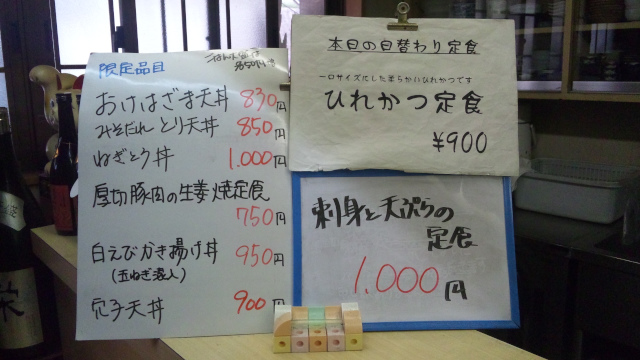 限定品目
おけはざま天丼 830円
みそだれ とり天丼 850円
ねぎとろ丼 1.000円
厚切豚肉の生姜焼定食
750円
白えびかき揚げ丼 950円
(玉ねぎ混入)
穴子天丼 900円
本日の日替わり定食
一口サイズにした柔らかいひれかつです
ひれかつ定食
¥900
刺身と天ぷらの
定食
1.000円